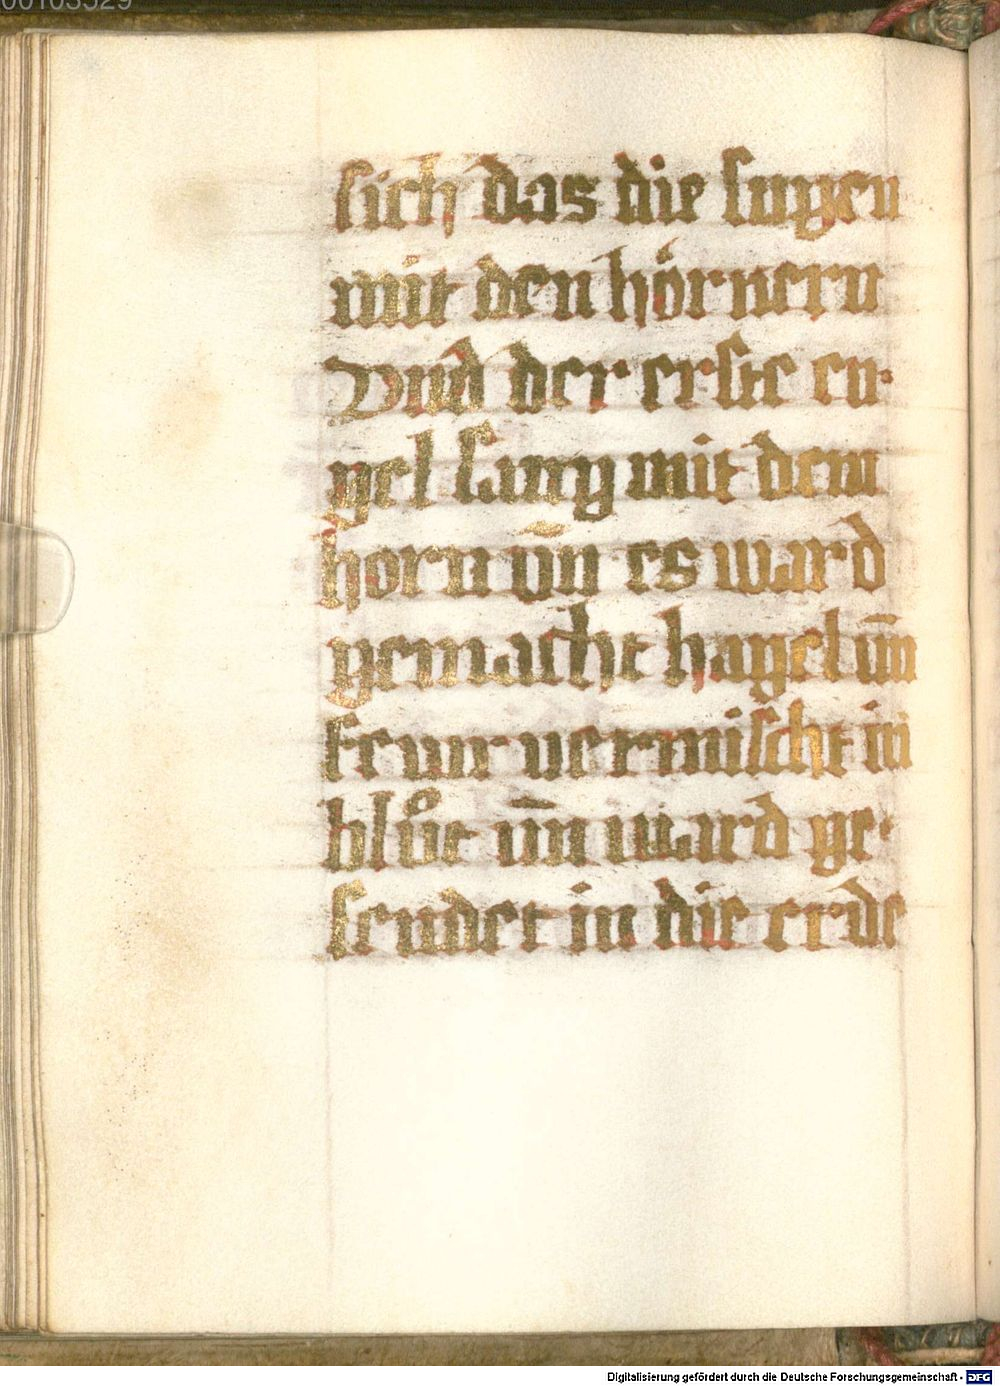 00103529
sich das die sungen
mit den hörnern
Vnd der erste en-
gel sang mit dem
horn vn̄ es ward
gemacht hagel vn̄
feur vermischt in
blůt vn̄ ward ge-
sendet in die erde
Digitalisierung gefördert durch die Deutsche Forschungsgemeinschaft - DFG